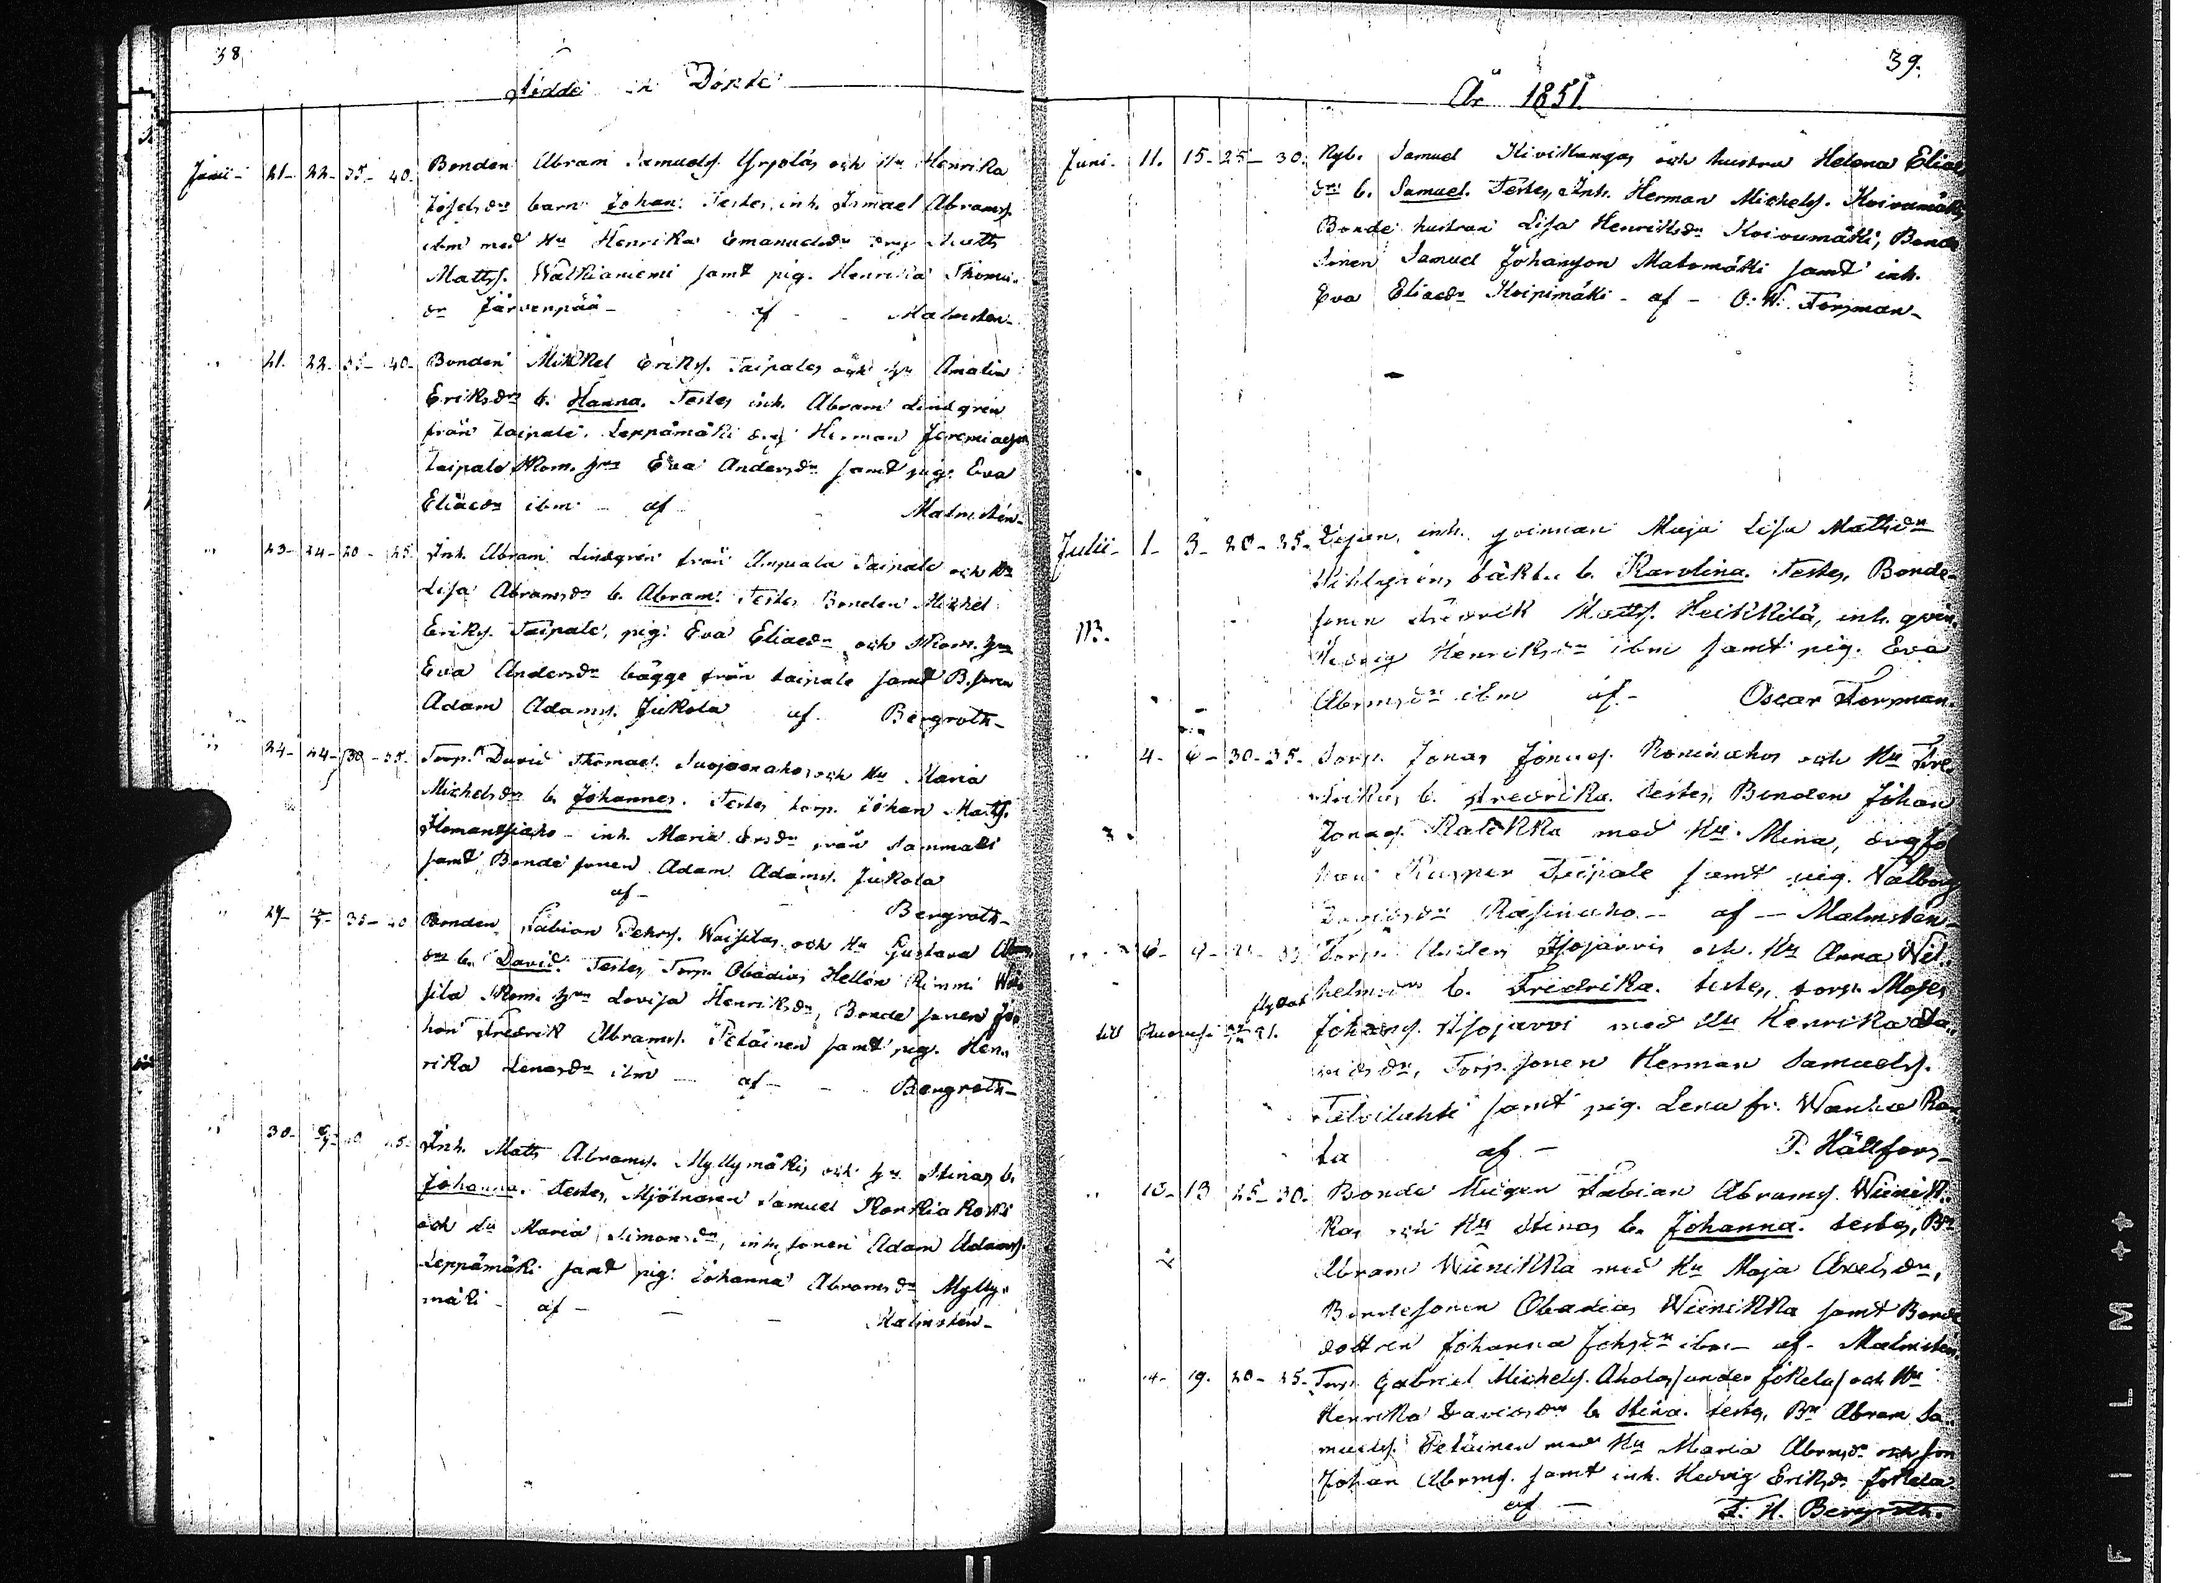 38.
Födde och Döpte
Junii - 21- 22- 35- 40. Bonden Abram Samuels. Yrjolás och Hu Henrika
Josefsdr barn Johan. Testes, inh. Ismael Abrams.
ibm med Hu Henrika Emanuelsdr drg Matts
Matts. Walkianiemi samt pig. Henrika Thoms
dr Järvenpää - af - Malmstén -
" 21. 22. 35- 40- Bonden Mikkel Eriks. Taipales och hu Amalia
Eriksdrs b. Hanna. Testes inh. Abram Lindgrén
från Taipale. Leppämäki drg Herman Jeremiaeson
Taipale Skom. hu Eva Andersdr samt pig. Eva
Eliaedr ibm - af - Malmstén -
" 23- 24- 20- 25. Inh. Abram Lindgrén från Taipale och Hu
Lisa Abramsdr b. Abram. Testes Bonden Michel
Eriks. Taipale, pig. Eva Eliaedr och Skom. hu
Eva Andersdr bägge från taipale samt B. sonen
Adam Adams. Jukola af Bergroth -
" 24- 24- 30- 35. Torp. David Thomae. Suojoenahos och Hu Maria
Michelsdrs b. Johannes. Testes torp. Johan Matts.
inh. Maria Ersdr från Sammatti
samt Bonde sonen Adam Adams. Jukola
af - Bergroth -
" 29- 35- 40 Bonden Fabian Pehrs. Waisilas och Hu Gustava Abms
drs b. David. Testes, Torp. Obadias Hellén Rimmi Wai
sila Skom. hu Lovisa Henriksdr, Bonde sonen Jo
han Fredrik Abrams. Petäinen samt pig. Hen
rika Lenasdr ibm - af - Bergroth -
" 30- Inh. Matts Abrams. Myllymäkis och hu Stinas b.
Johanna. Testes, Mjölnaren Samuel
och Hu Maria Simonsdr, inh. sonen Adam Adams.
Leppämäki samt pig. Johanna Abramsdr Mylly-
mäki - af - Malmstén -
39.
År 1851
Juni. 11. 15- 25- 30. Nyb. Samuel Kivikangas och hustru Helena Eliae
drs b. Samuel. Testes, Inh. Herman Michels. Koivumäki,
Bonde hustrun Lisa Henriksdr Koivumäki, Bonde
sonen Samuel Johansson Matomäki samt inh.
Eva Eliaedr Koipimäki - af - O. W. Forsman -
Julii - 1- 3- 20- 25. inh. qvinnan Maja Lisa Mattsdr
b. Karolina. Testes, Bonde-
sonen Fredrik Matts. Heikkilä, inh. qvin.
Hedvig Henriksdr ibm samt pig. Eva
Abrmsdr ibm af - Oscar Forsman.
113.
" 4- 6- 30- 35. Torp. Jonas Jonaes. och Hu Fre
drikas b. Fredrika. testes, Bonden Johan
Jonaes. Ralikka med Hu Mina, drg Jo
han Kasper Taipale samt pig. Valborg
Davidsdr Räsinaho - af - Malmstén -
" 6- 9- Torp. Anders Isojärvis och Hu Anna Wil
helmsdrs b. Fredrika. testes, torp. Moses
flyttat
till Johans. Isojärvi med Hu Henrika Da
vidsdr, Torp. sonen Herman Samuels.
samt pig. Lena fr. Wanha Ran
ta af - P. Hällfors -
" 10- 13 25- 30. Bonde Mågen Fabian Abrams. Wiinik
kas och Hu Stinas b. Johanna. testes, Bn
Abram Wiinikka med Hu Maja Axelsdr,
Bondesonen Obadias Wiinikka samt Bonde
dottren Johanna Johsdr ibm - af - Malmstén
" 14- 19. 20- 25- Torp. Gabriel Michels. Aholas /under Jokela/ och Hu
Henrika Davidsdrs b. Stina. testes, Bn Abram Sa
muels. Petäinen med Hu Maria Abrmsdr och son
Johan Abrms. samt inh. Hedvig Eriksdr Jokela
af - F. H. Bergroth.
FILM